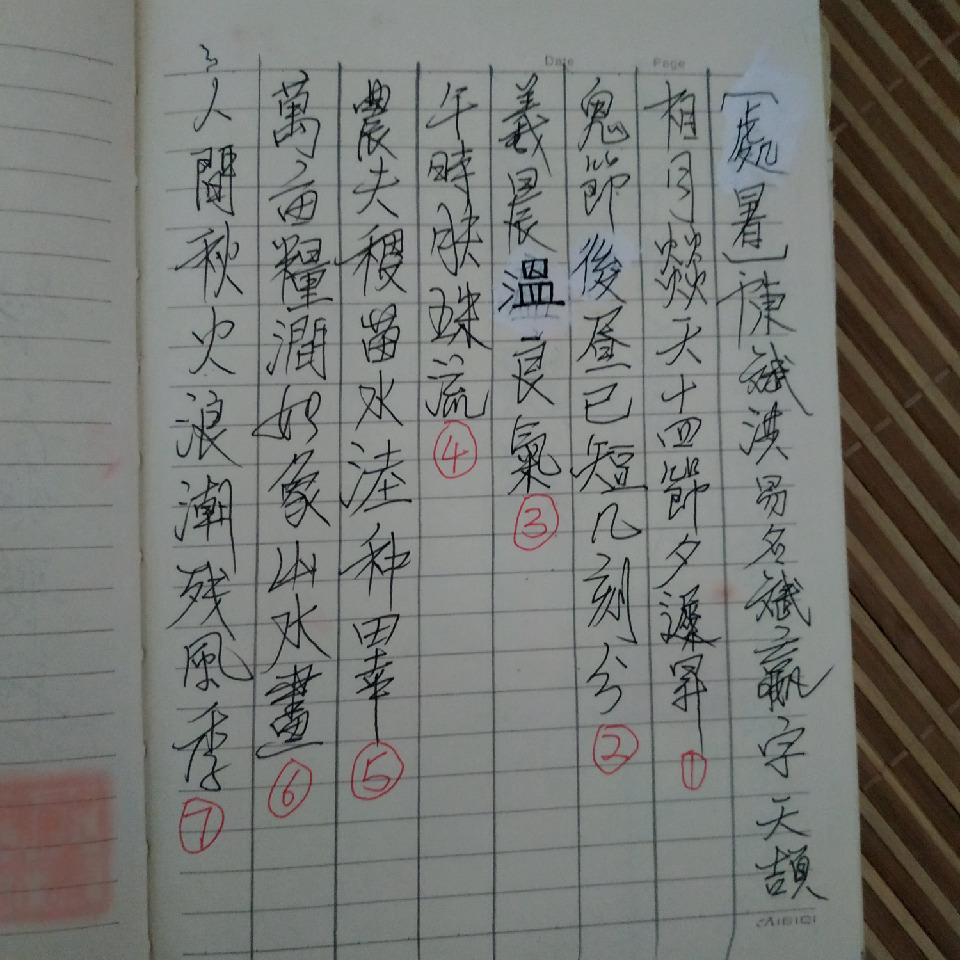 [處暑]陳斌淇易名斌贏字天頡
相月燚天十四節夕遲昇①
鬼節後昼已短几刻分②
羲晨溫良氣③
午時肤珠流④
農夫稷苗水涟种田幸⑤
萬亩糧潤如象山水畫⑥
人間秋火浪潮残風季⑦
Date
Page